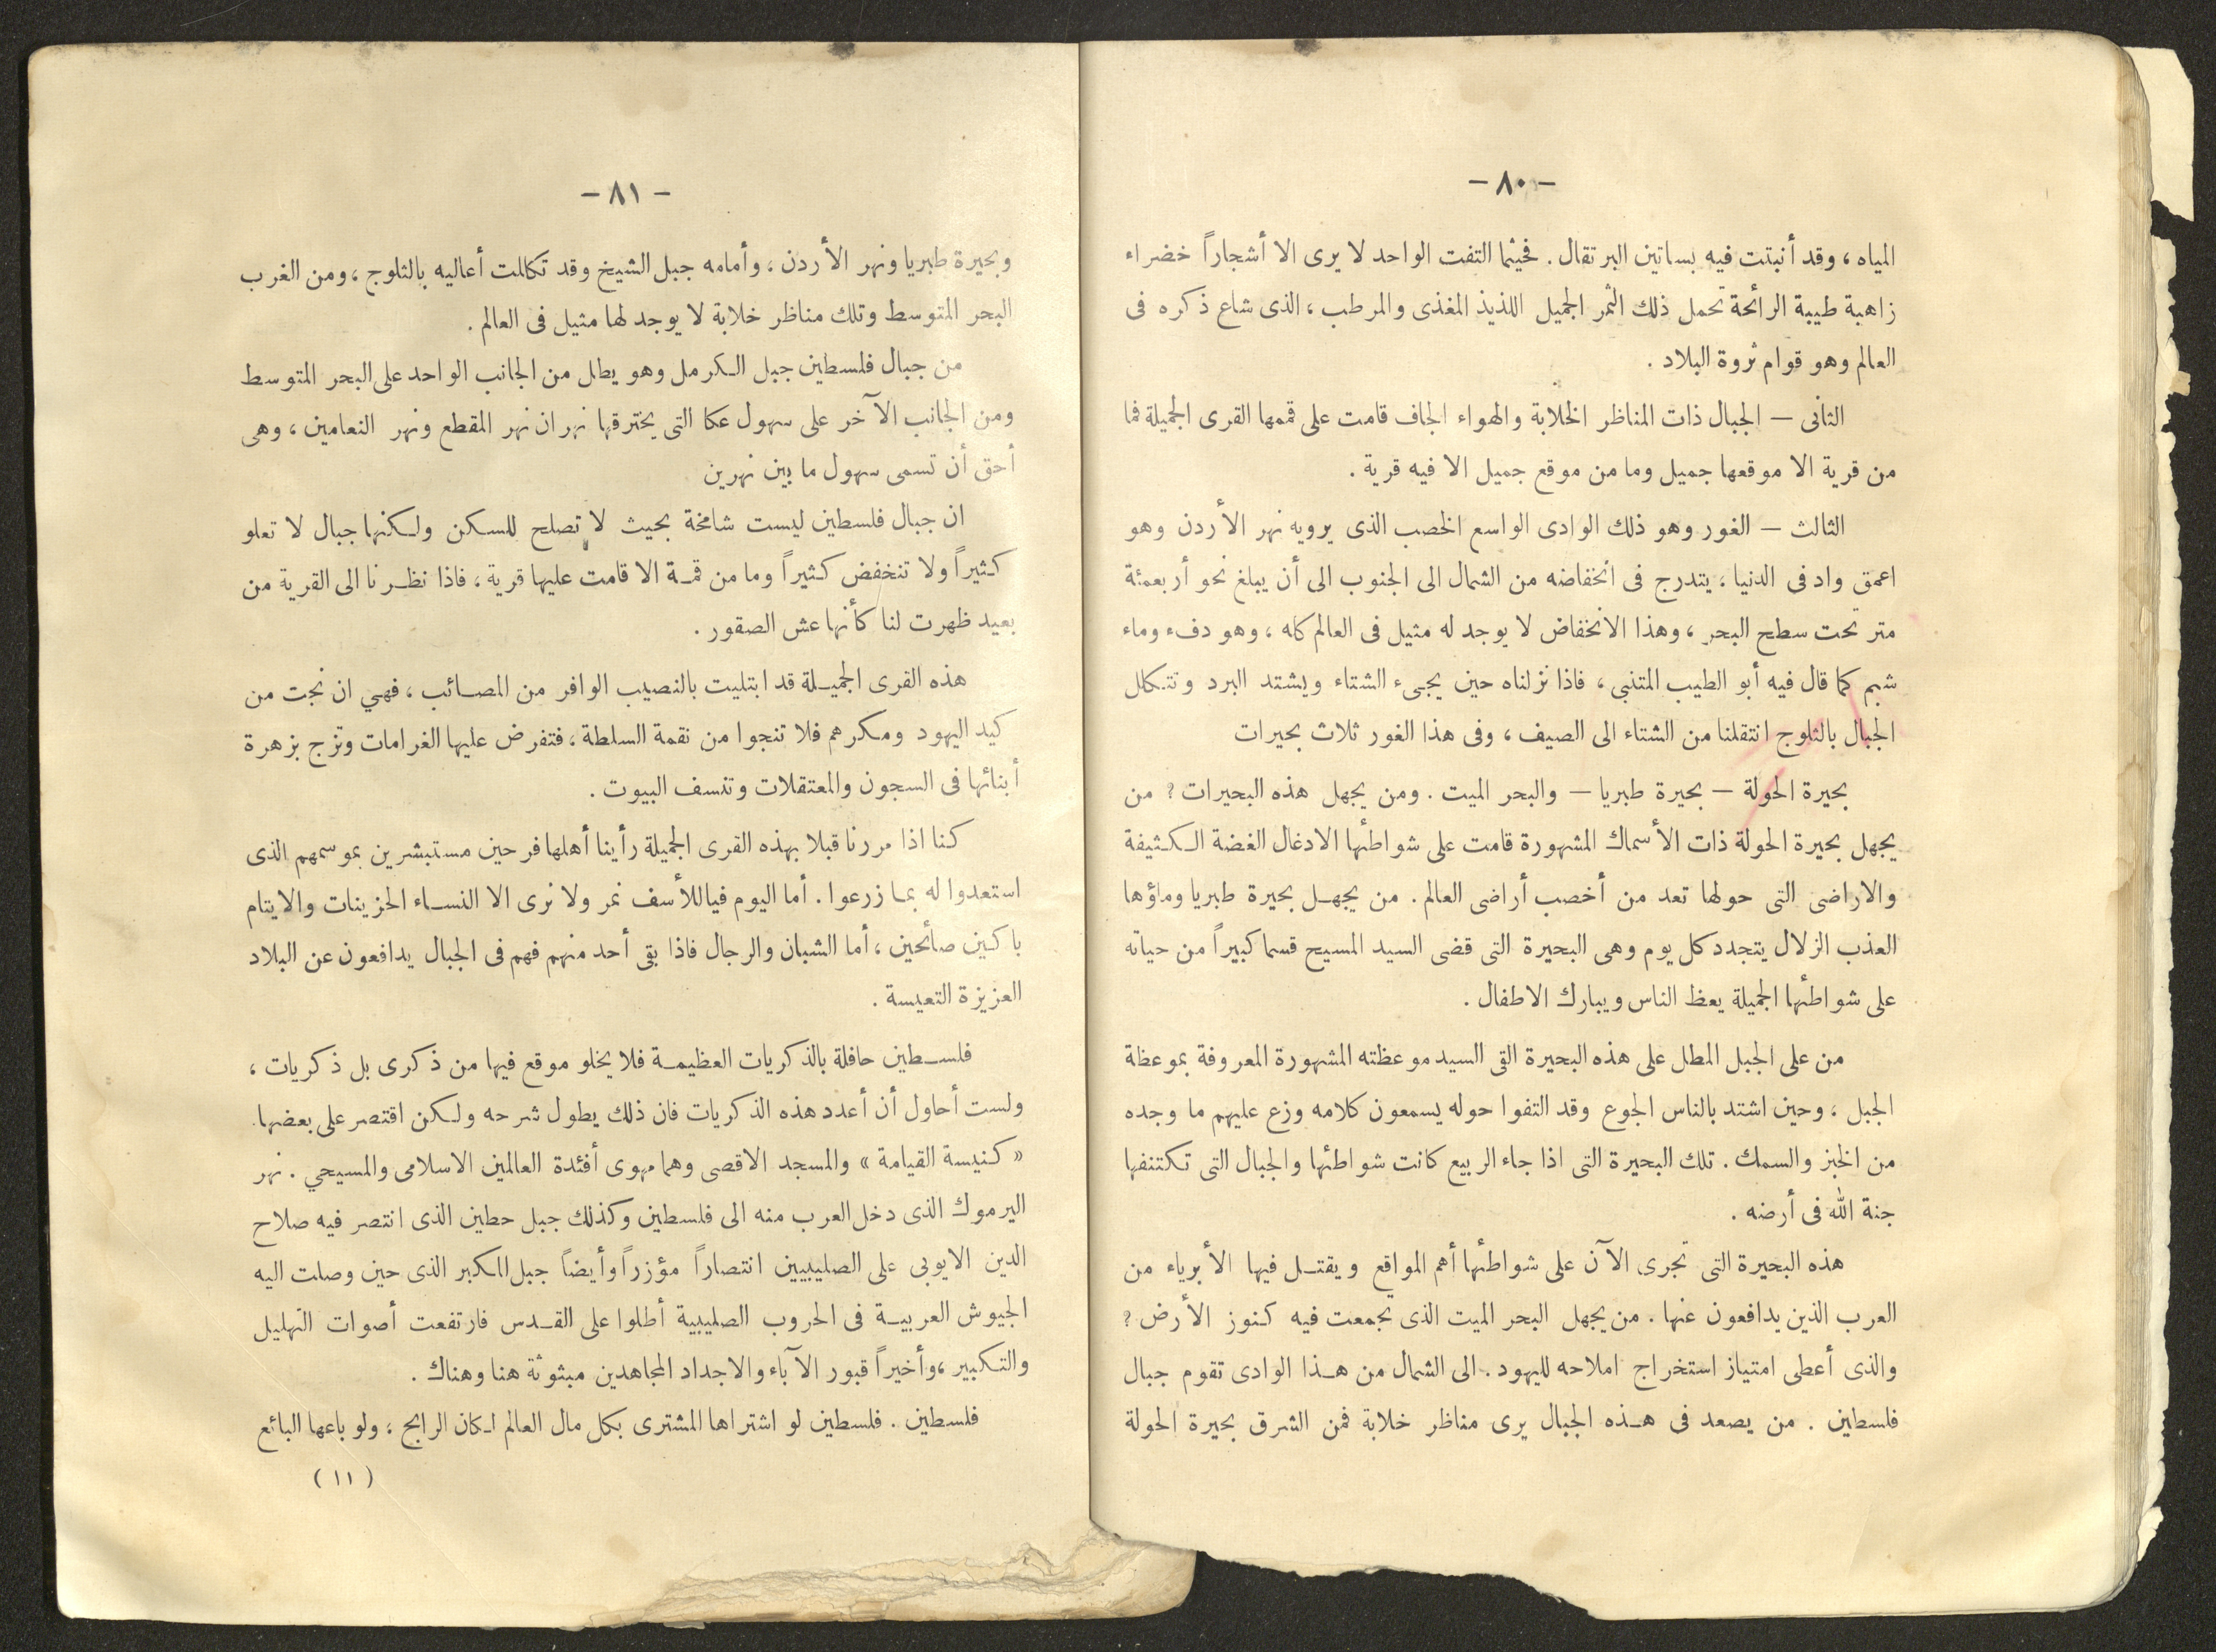 — ٨٠ —
المياه ، وقد أنبتت فيه بساتين البرتقال . فحيثما التفت الواحد لا يرى الا أشجاراً خضراء
زاهية طيبة الرائحة تحمل ذلك الثمر الجميل اللذيذ المغذى والمرطب ، الذى شاع ذكره فى
العالم وهو قوام ثروة البلاد .
الثانى — الجبال ذات المناظر الخلابة والهواء الجاف قامت على قممها القرى الجميلة فما
من قرية الا موقعها جميل وما من موقع جميل الا فيه قرية .
الثالث — الغور وهو ذلك الوادى الواسع الخصب الذى يرويه نهر الأردن وهو
اعمق واد فى الدنيا ، يتدرج فى انخفاضه من الشمال الى الجنوب الى أن يبلغ نحو أربعمئة
متر تحت سطح البحر ، وهذا الانخفاض لا يوجد له مثيل فى العالم كله ، وهو دفء وماء
شبم كما قال فيه أبو الطيب المتنبى ، فاذا نزلناه حين يجىء الشتاء ويشتد البرد وتتكلل
الجبال بالثلوج انتقلنا من الشتاء الى الصيف ، وفى هذا الغور ثلاث بحيرات
بحيرة الحولة — بحيرة طبريا — والبحر الميت . ومن يجهل هذه البحيرات ؟ من
يجهل بحيرة الحولة ذات الأسماك المشهورة قامت على شواطئها الادغال الغضة الكثيفة
والاراضى التى حولها تعد من أخصب أراضى العالم . من يجهل بحيرة طبريا وماؤها
العذب الزلال يتجدد كل يوم وهى البحيرة التى قضى السيد المسيح قسما كبيراً من حياته
على شواطئها الجميلة يعظ الناس ويبارك الاطفال .
من على الجبل المطل على هذه البحيرة القى السيد موعظته المشهورة المعروفة بموعظة
الجبل ، وحين اشتد بالناس الجوع وقد التفوا حوله يسمعون كلامه وزع عليهم ما وجده
من الخبز والسمك . تلك البحيرة التى اذا جاء الربيع كانت شواطئها والجبال التى تكتنفها
جنة الله فى أرضه .
هذه البحيرة التى تجرى الآن على شواطئها أهم المواقع ويقتل فيها الأبرياء من
العرب الذين يدافعون عنها . من يجهل البحر الميت الذى تجمعت فيه كنوز الأرض ؟
والذى أعطى امتياز استخراج املاحه لليهود . الى الشمال من هذا الوادى تقوم جبال
فلسطين . من يصعد فى هذه الجبال يرى مناظر خلابة فمن الشرق بحيرة الحولة
— ٨١ —
وبحيرة طبريا ونهر الأردن ، وأمامه جبل الشيخ وقد تكللت أعاليه بالثلوج ، ومن الغرب
البحر المتوسط وتلك مناظر خلابة لا يوجد لها مثيل فى العالم .
من جبال فلسطين جبل الكرمل وهو يطل من الجانب الواحد على البحر المتوسط
ومن الجانب الآخر على سهول عكا التى يخترقها نهران نهر المقطع ونهر النعامين ، وهى
أحق أن تسمى سهول ما بين نهرين
ان جبال فلسطين ليست شامخة بحيث لا تصلح للسكن ولكنها جبال لا تعلو
كثيراً ولا تنخفض كثيراً وما من قمة الا قامت عليها قرية ، فاذا نظرنا الى القرية من
بعيد ظهرت لنا كأنها عش الصقور .
هذه القرى الجميلة قد ابتليت بالنصيب الوافر من المصائب ، فهي ان نجت من
كيد اليهود ومكرهم فلا تنجوا من نقمة السلطة ، فتفرض عليها الغرامات وتزج بزهرة
أبنائها فى السجون والمعتقلات وتنسف البيوت .
كنا اذا مررنا قبلا بهذه القرى الجميلة رأينا أهلها فرحين مستبشرين بموسمهم الذى
استعدوا له بما زرعوا . أما اليوم فياللأسف نمر ولا نرى الا النساء الحزينات والايتام
باكين صائحين ، أما الشبان والرجال فاذا بقى أحد منهم فهم فى الجبال يدافعون عن البلاد
العزيزة التعيسة .
فلسطين حافلة بالذكريات العظيمة فلا يخلو موقع فيها من ذكرى بل ذكريات ،
ولست أحاول أن أعدد هذه الذكريات فان ذلك يطول شرحه ولكن اقتصر على بعضها .
« كنيسة القيامة » والمسجد الاقصى وهما مهوى أفئدة العالمين الاسلامى والمسيحي . نهر
اليرموك الذى دخل العرب منه الى فلسطين وكذلك جبل حطين الذى انتصر فيه صلاح
الدين الايوبى على الصليبيين انتصاراً مؤزراً وأيضاً جبل المكبر الذى حين وصلت اليه
الجيوش العربية فى الحروب الصليبية أطلوا على القدس فارتفعت أصوات التهليل
والتكبير ، وأخيراً قبور الآباء والاجداد المجاهدين مبثوثة هنا وهناك .
فلسطين . فلسطين لو اشتراها المشترى بكل مال العالم لكان الرابح ، ولو باعها البائع
( ١١ )